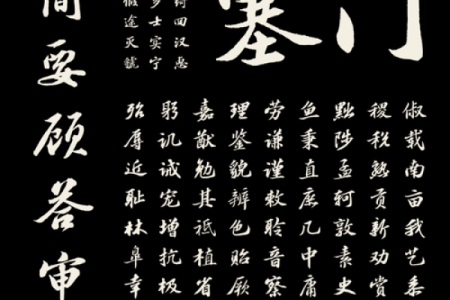 门塞
绮回汉惠
多士实宁
假途灭虢
俶载南亩我艺黍
稷税熟贡新劝赏
黜陟孟轲敦素史
鱼秉直庶几中庸
劳谦谨敕聆音察
理鉴貌辨色贻厥
嘉猷勉其祗植省
躬讥诫宠增抗极
殆辱近耻林皋幸
简要顾答审